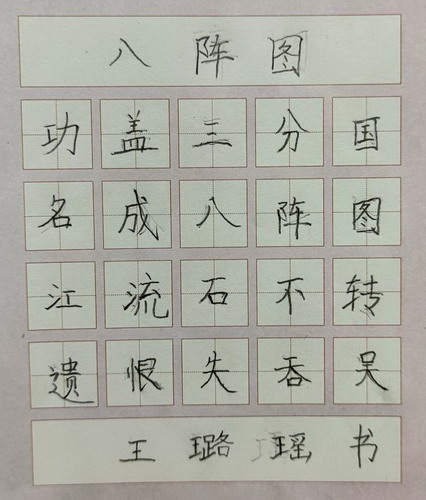 八阵图
功盖三分国
名成八阵图
江流石不转
遗恨失吞吴
王璐瑶书